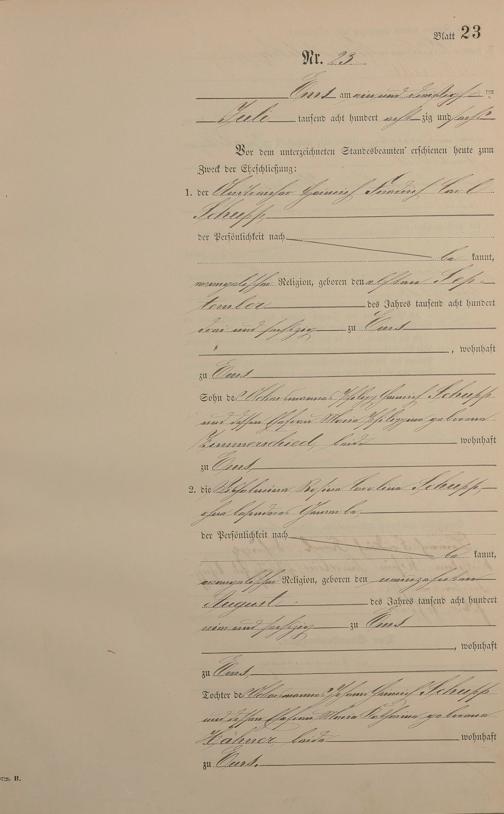 Blatt 23
Nr. 23.
Ems am ein und zwanzigsten
Juli tausend acht hundert acht zig und sechs
Vor dem unterzeichneten Standesbeamten erschienen heute zum
Zweck der Eheschließung:
1. der Heinrich Friedrich Carl
Schupp
der Persönlichkeit nach
be kannt,
evangelischer Religion, geboren den elften Sep-
tember des Jahres tausend acht hundert
drei und sechszig zu Ems
, wohnhaft
zu Ems
Sohn des Ackermannes Philipp Heinrich Schupp
und dessen Ehefrau Maria Philippina geborene
Zimmerschied, beide wohnhaft
zu Ems
2. die Wilhelmina Rosina Carolina Schupp
ohne besonderes Gewerbe
der Persönlichkeit nach
be kannt,
evangelischer Religion, geboren den neunzehnten
August des Jahres tausend acht hundert
und sechszig zu Ems
, wohnhaft
zu Ems
Tochter des Ackermannes Johann Heinrich Schupp
und dessen Ehefrau Maria Katharina geborene
Hähner beide wohnhaft
zu Ems.
B.